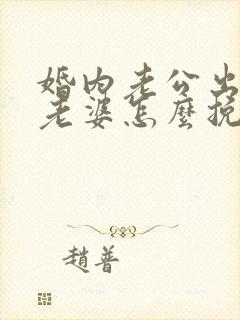 婚內老公出
老婆怎麼挽
趙普